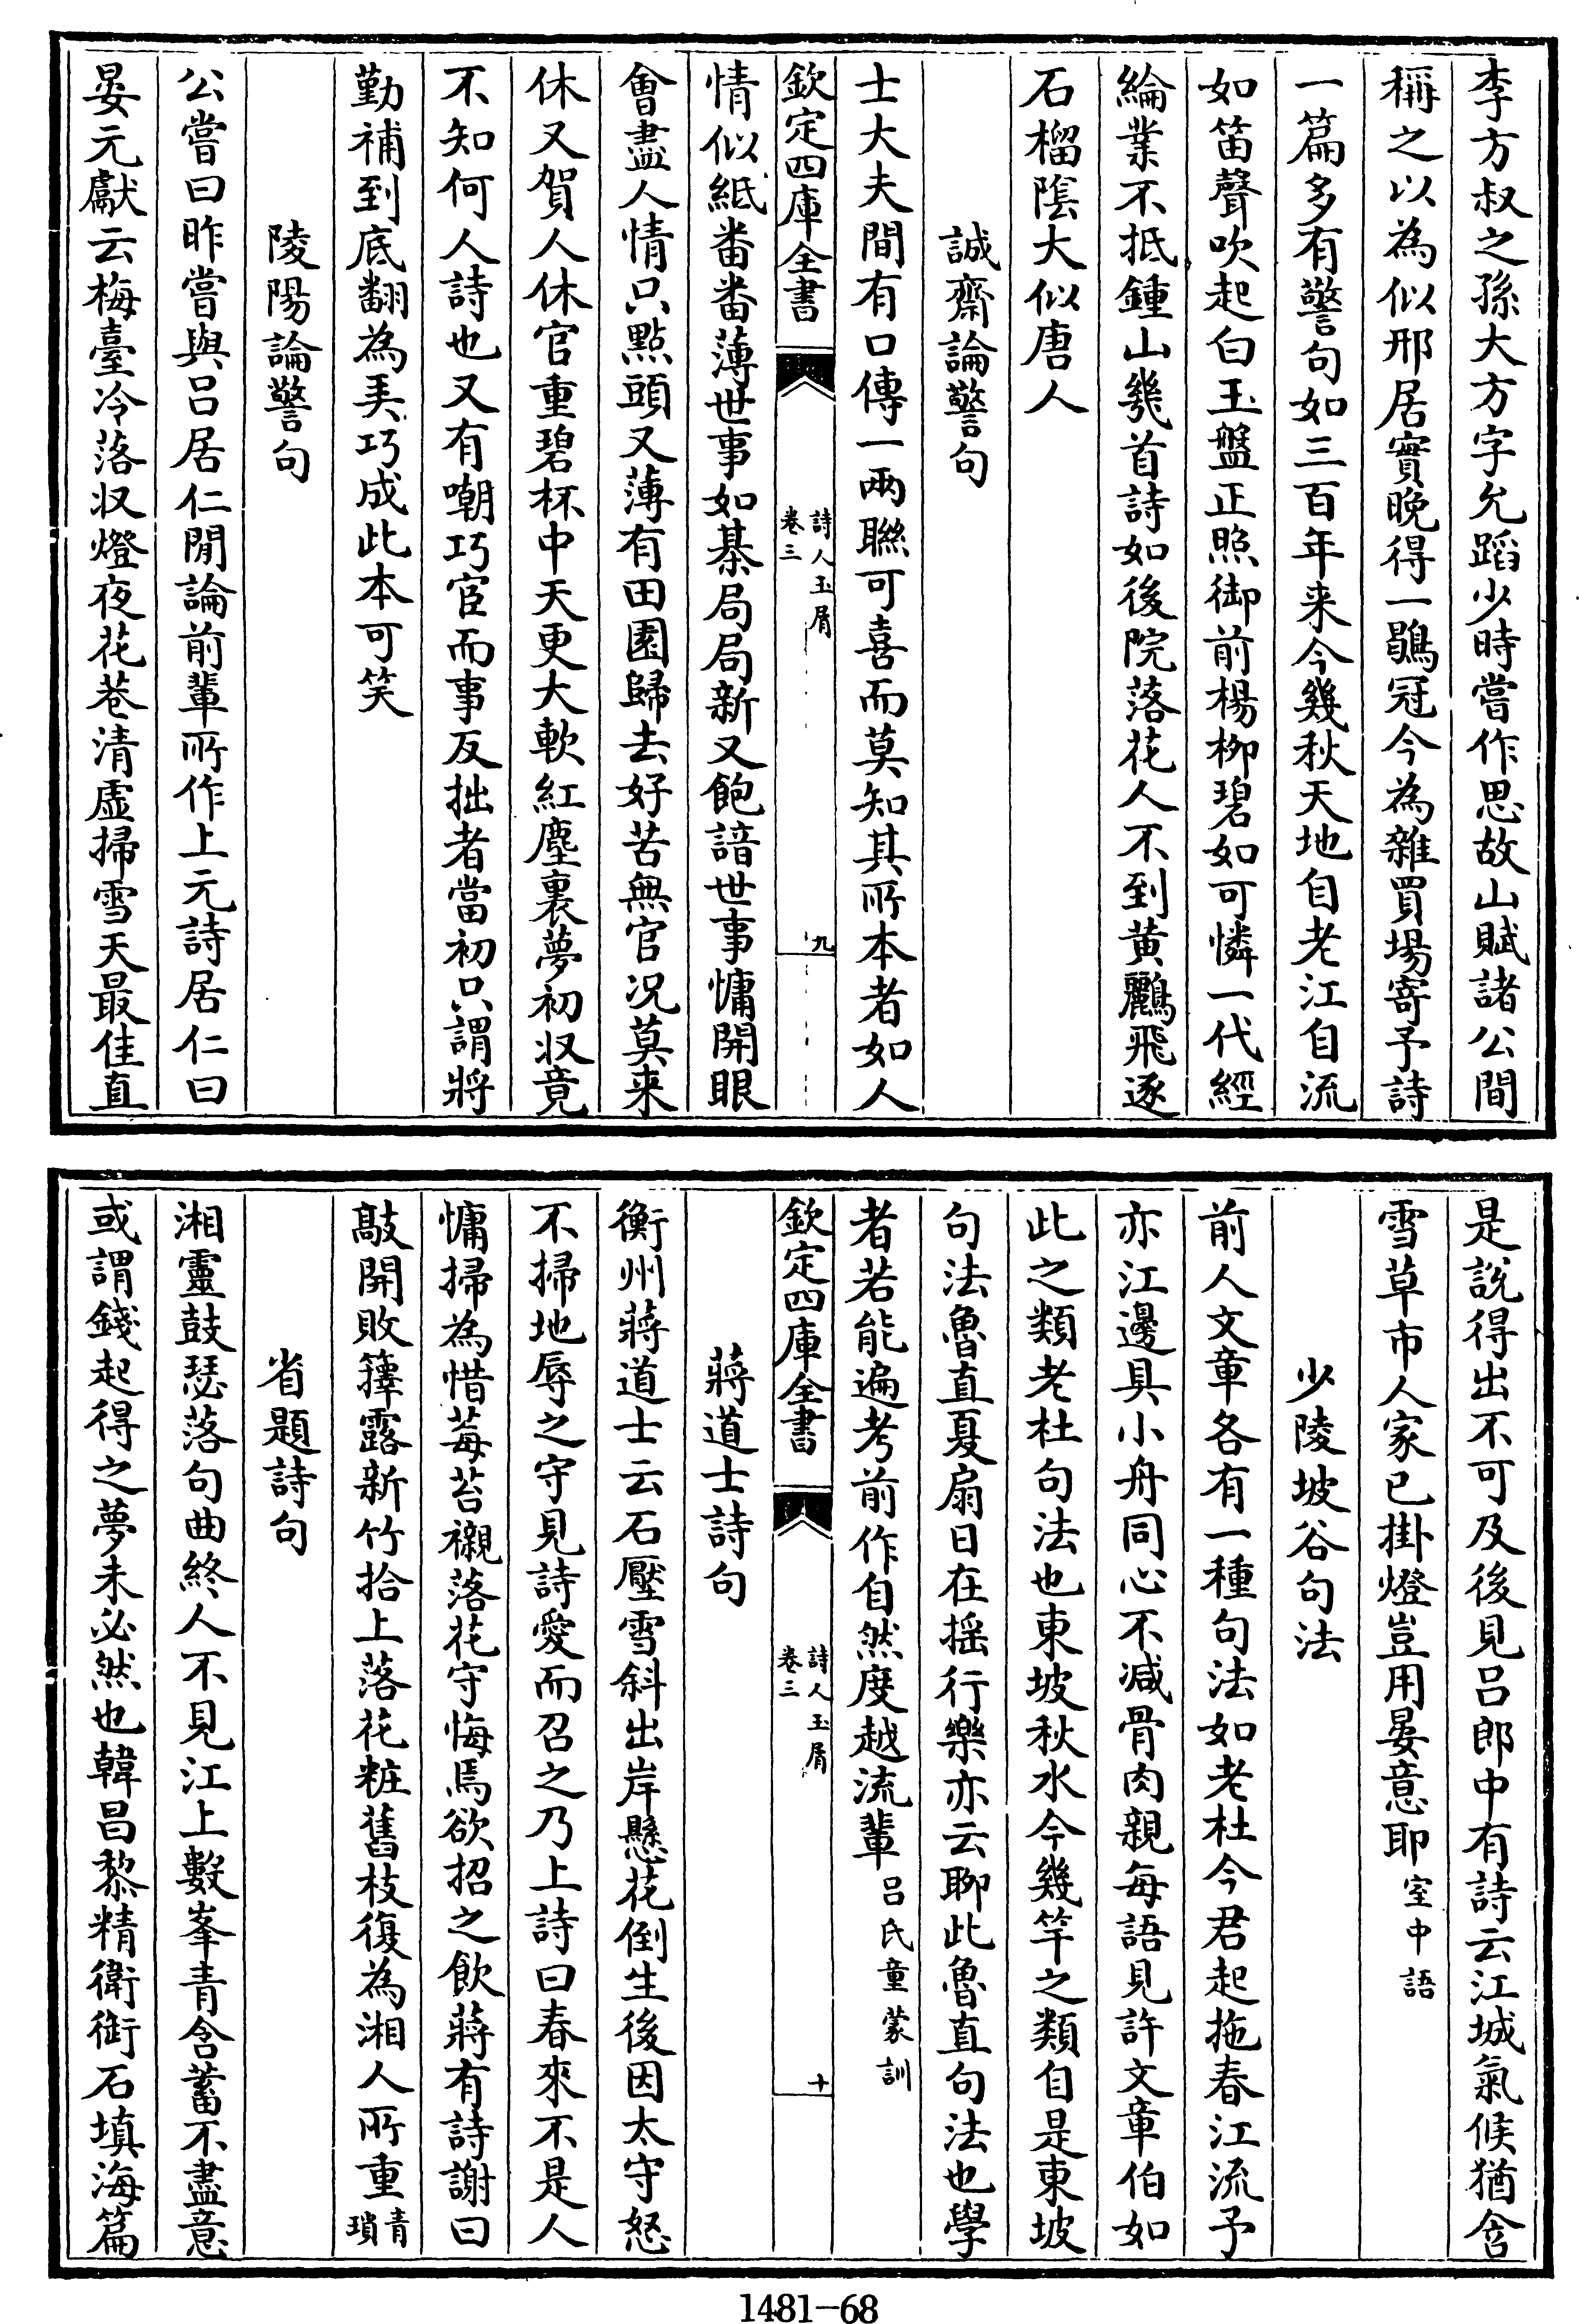 李方叔之孫大方字允蹈少時嘗作思故山賦諸公間
稱之以為似邢居實晚得一鶡冠今為雜買場寄予詩
一篇多有警句如三百年来今幾秋天地自老江自流
如笛聲吹起白玉盤正照御前楊栁碧如可憐一代經
綸業不抵鍾山幾首詩如後院落花人不到黄鸝飛逐
石榴隂大似唐人
誠齋論警句
士大夫間有口傳一兩聯可喜而莫知其所本者如人
欽定四庫全書
詩人玉屑
卷三
九
情似紙番番薄世事如棊局局新又飽諳世事慵開眼
會盡人情只點頭又薄有田園歸去好苦無官况莫来
休又賀人休官重碧杯中天更大軟紅塵裏夢初収竟
不知何人詩也又有嘲巧宦而事反拙者當初只謂將
勤補到底翻為弄巧成此本可笑
陵陽論警句
公嘗曰昨嘗與吕居仁閒論前輩所作上元詩居仁曰
晏元獻云梅臺冷落収燈夜花巷清虚掃雪天最佳直
是說得出不可及後見吕郎中有詩云江城氣候猶含
雪草市人家已掛燈豈用晏意耶室中語
少陵坡谷句法
前人文章各有一種句法如老杜今君起拖春江流予
亦江邊具小舟同心不减骨肉親每語見許文章伯如
此之類老杜句法也東坡秋水今幾竿之類自是東坡
句法魯直夏扇日在揺行樂亦云聊此魯直句法也學
者若能遍考前作自然度越流輩吕氏童蒙訓
欽定四庫全書
詩人玉屑
卷三
十
蔣道士詩句
衡州蔣道士云石壓雪斜出岸懸花倒生後因太守怒
不掃地辱之守見詩愛而召之乃上詩曰春來不是人
慵掃為惜莓苔襯落花守悔焉欲招之飲蔣有詩謝曰
敲開敗籜露新竹拾上落花粧舊枝復為湘人所重青瑣
省題詩句
湘靈鼓瑟落句曲終人不見江上數峯青含蓄不盡意
或謂錢起得之夢未必然也韓昌黎精衛銜石填海篇
1481-68